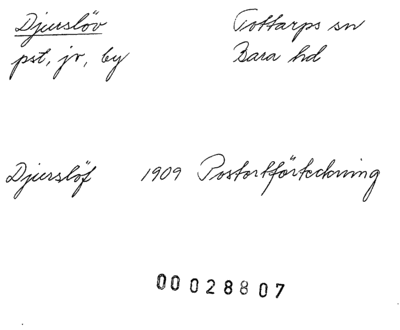 Djurslöv Tottarps sn
pst, jv, by Bara hd
Djurslöf 1909 Postortförteckning
00028807